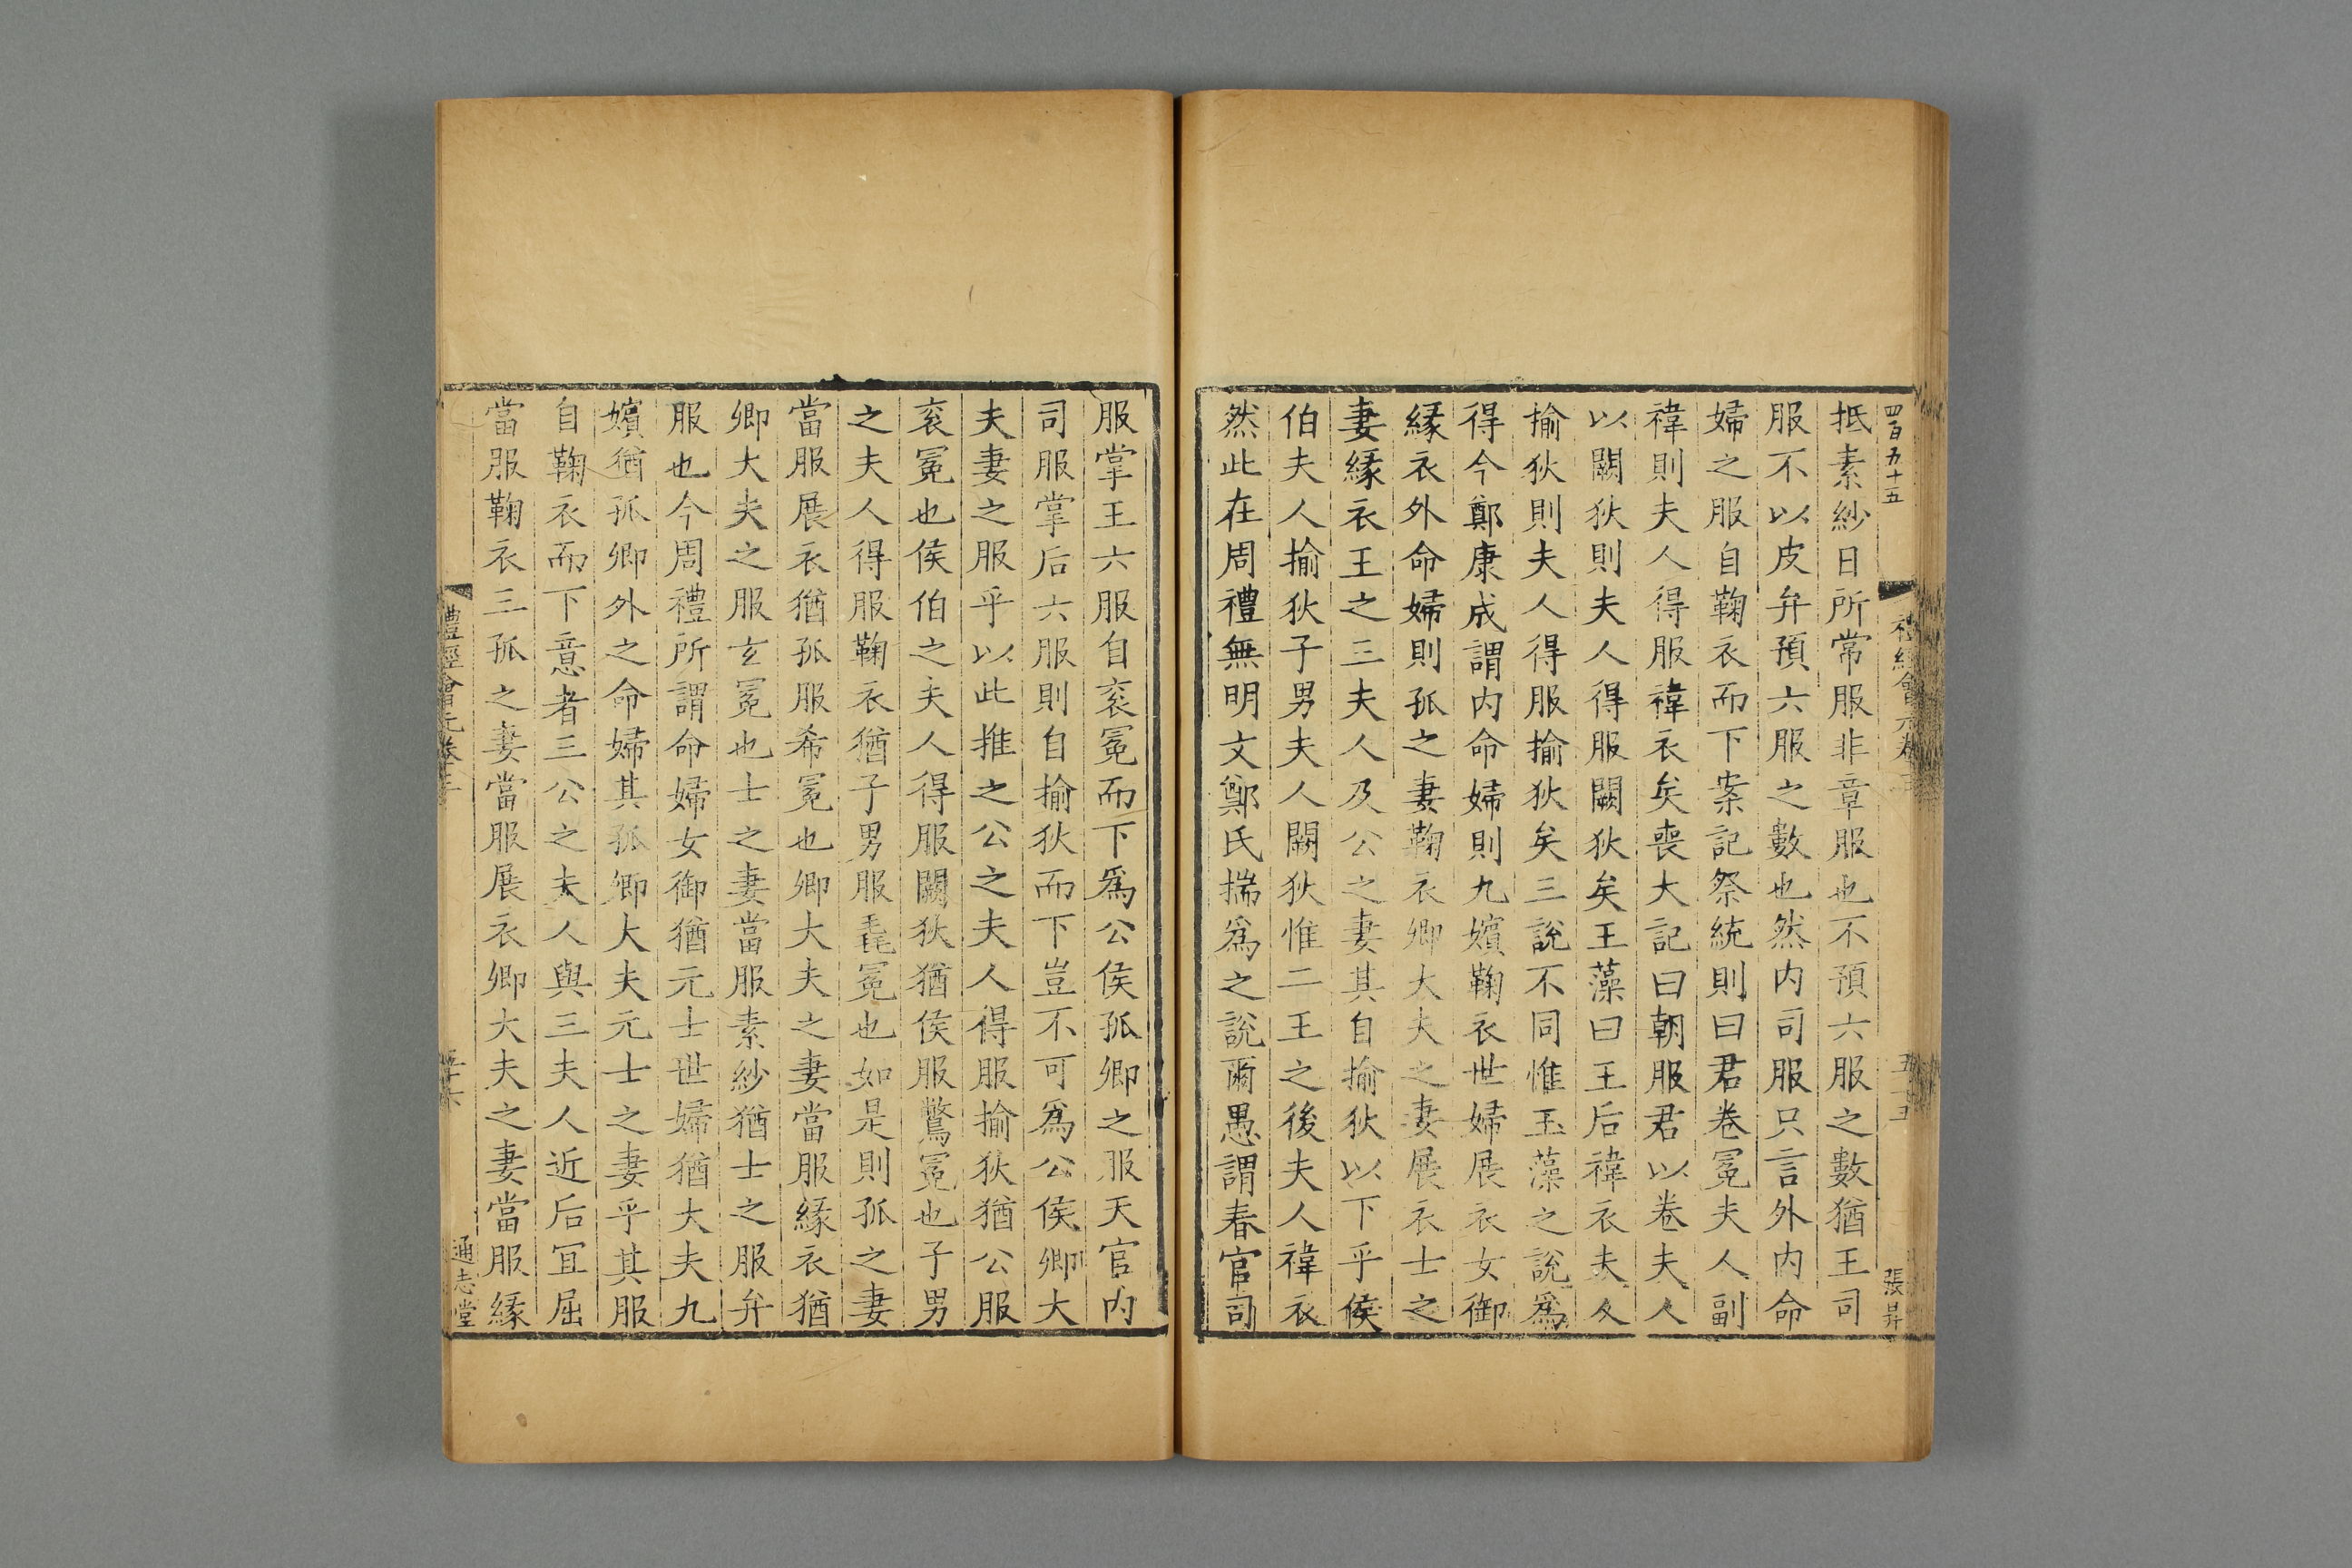 四百五十五
禮經會元卷三
五十五
張昇
抵素紗日所常服非章服也不預六服之數猶王司
服不以皮弁預六服之數也然内司服只言外内命
婦之服自鞠衣而下案記祭統則曰君卷冕夫人副
褘則夫人得服褘衣矣喪大記曰朝服君以卷夫人
以闕狄則夫人得服闕狄矣王藻曰王后褘衣夫人
揄狄則夫人得服揄狄矣三說不同惟玉藻之說爲
得今鄭康成謂内命婦則九嬪鞠衣世婦展衣女御
緣衣外命婦則孤之妻鞠衣卿大夫之妻展衣士之
妻緣衣王之三夫人及公之妻其自揄狄以下乎侯
伯夫人揄狄子男夫人闕狄惟二王之後夫人褘衣
然此在周禮無明文鄭氏揣爲之說爾愚謂春官司
服掌王六服自衮冕而下爲公侯孤卿之服天官内
司服掌后六服則自揄狄而下豈不可爲公侯卿大
夫妻之服乎以此推之公之夫人得服揄狄猶公服
衮冕也侯伯之夫人得服闕狄猶侯服鷩冕也子男
之夫人得服鞠衣猶子男服毳冕也如是則孤之妻
當服展衣猶孤服希冕也卿大夫之妻當服緣衣猶
卿大夫之服玄冕也士之妻當服素紗猶士之服弁
服也今周禮所謂命婦女御猶元士世婦猶大夫九
嬪猶孤卿外之命婦其孤卿大夫元士之妻乎其服
自鞠衣而下意者三公之夫人與三夫人近后冝屈
當服鞠衣三孤之妻當服展衣卿大夫之妻當服緣
禮經會元卷三
五十六
通志堂